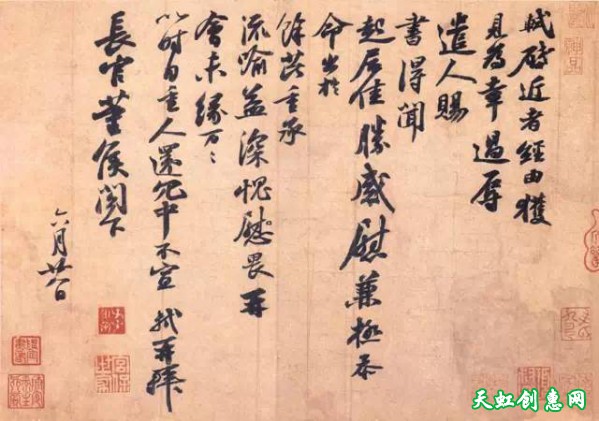 軾啟近者經由獲
見為幸過辱
遣人賜
書得聞
起居佳勝感慰兼極忝
命出於
餘芘重承
流喻益深愧慰畏再
會未緣万〻
以時自重人還冗中不宣 軾再拜
長官董侯閣下
六月廿八日
天虹创惠网